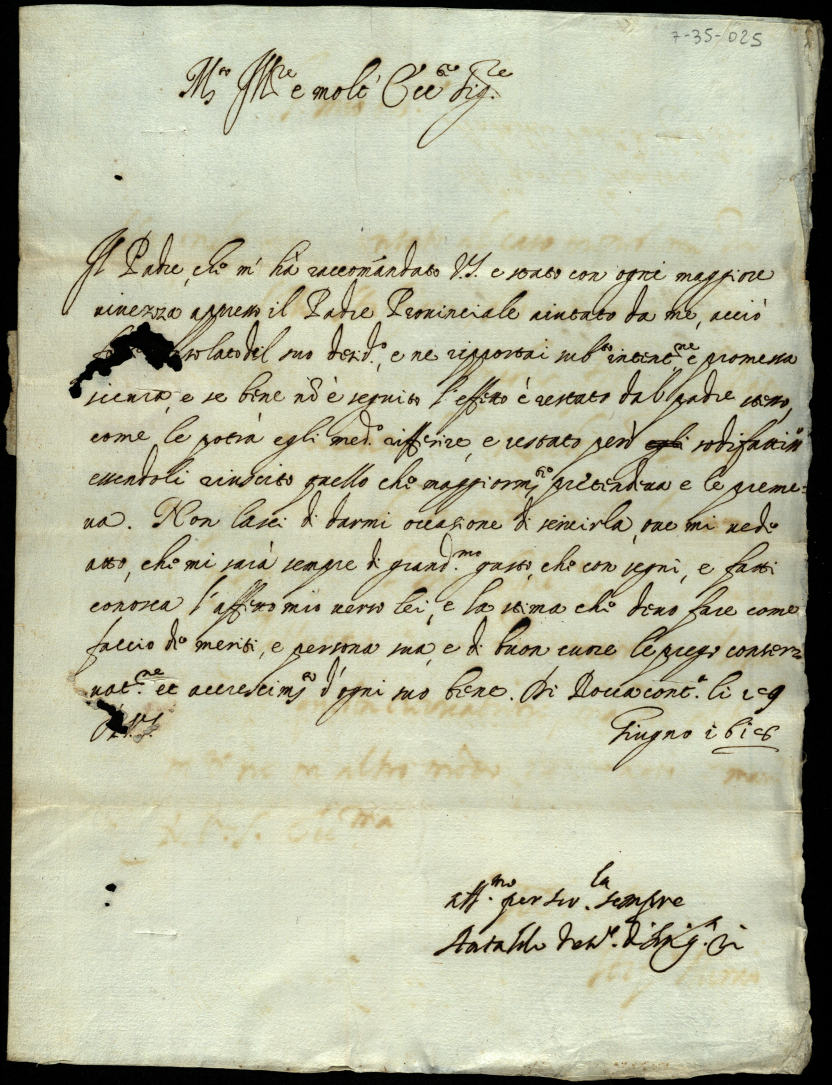 7-35-025
M.to Ill.re e molt' Ecc.te Sig.re
Il Padre, che m' hà raccomandato V.S. è stato con ogni maggiore
vivezza appresso il Padre Provinciale aiutato da me, acciò
solato del suo desid.o, e ne ripportai sub.to intent.ne e promessa
sicura, e se bene nō è seguito l'effetto è restato dal padre stesso,
come le potrà egli med.o rifferire, e restato però sodisfattis.o
essendoli riuscito quello che maggiorm.te pretendeva e le preme-
va. Non lasci di darmi occasione di servirla, ove mi vede
atto, che mi sarà sempre di grand.mo gusto, che con segni, e fatti
conosca l'affetto mio verso lei, e la stima che devo fare come
faccio de meriti, e persona sua, e di buon cuore le prego conser-
vat.ne et accrescim.to d'ogni suo bene. Di Roccacont.a li
D.V.S.
Giugno
aff.mo per ser.la sempre